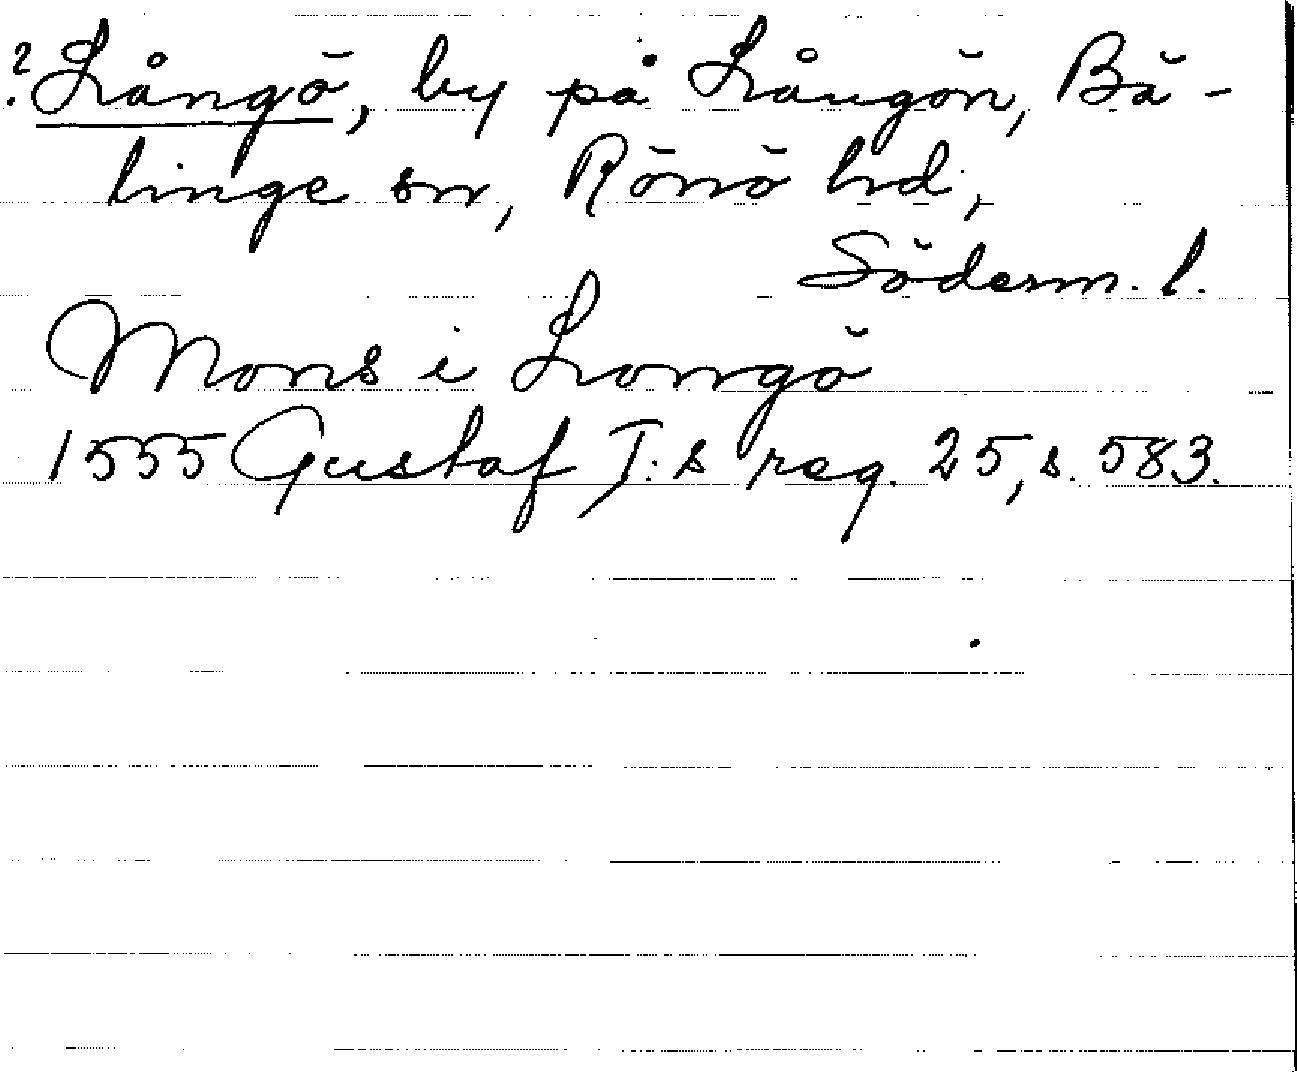 ? Långö, by på Långön, Bä-
linge sn, Rönö hd,
Söderm. l.
Mons i Longö
1555 Gustaf I:s reg. 25, s. 583.